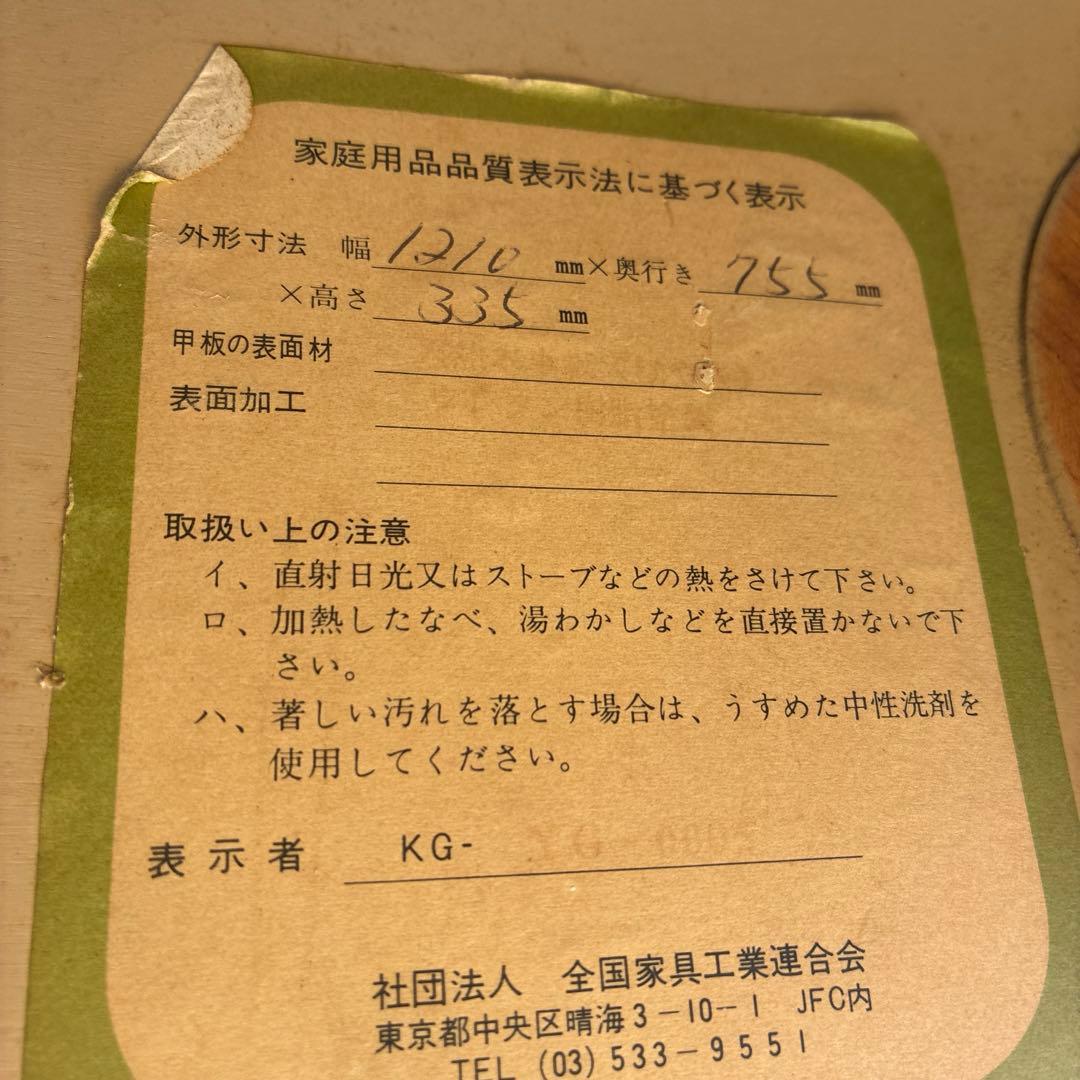 家庭用品品質表示法に基づく表示
外形寸法 幅 1210 mm×奥行き 755 mm
×高さ 335 mm
甲板の表面材
表面加工
取扱い上の注意
イ、直射日光又はストーブなどの熱をさけて下さい。
ロ、加熱したなべ、湯わかしなどを直接置かないで下
さい。
ハ、著しい汚れを落とす場合は、うすめた中性洗剤を
使用してください。
表示者 KG-
社団法人 全国家具工業連合会
東京都中央区晴海3-10-1 JFC内
TEL (03) 533-9551